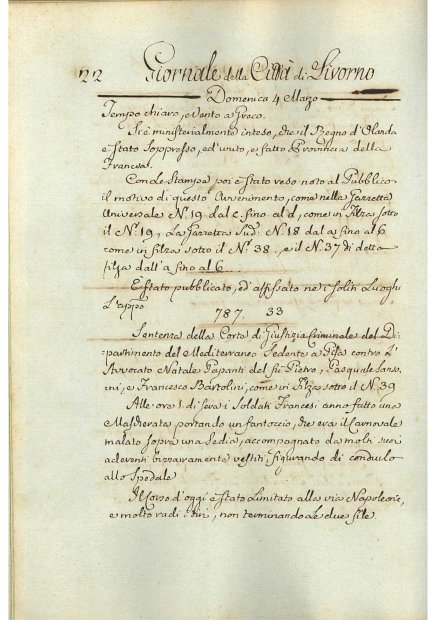 212 Giornale della Città di Livorno
Domenica 4 Marzo
Tempo chiaro, e Vento a Greco.
Si è ministerialmente inteso, che il Regno d'Olanda
è Stato Soppresso, ed unito, e fatto Provincia della
Francia.
Con le Stampe poi è Stato reso noto al Pubblico
il motivo di questo Avvenimento, come nella Gazzetta
Universale N. 19 dal c fino al d, come in Filza Sotto
il N. 19, La Gazzetta Sud. N. 18 dal a fino al 6
come in filza Sotto il N. 38, e il N. 37 di detta
filza dall'a fino al 6
È Stato pubblicato, ed affissato ne i Soliti Luoghi
L'app.o
787. 33
Sentenza della Corte di Giustizia Criminale del Di-
partimento del Mediterraneo Sedente a Pisa contro L'
Avvocato Natale Papanti del fù Pietro, Pasquale Sanso-
ni, e Francesco Bartolini, come in Filza Sotto il N. 39
Alle ore 1. di Sera i Soldati Francesi anno fatto una
Mascherata portando un fantoccio, che era il Carnovale
malato Sopra una Sedia, accompagnato da molti Suoi
aderenti bizzarramente vestiti figurando di condurlo
allo Spedale
Il Corso d'oggi è Stato Limitato alla via Napoleone,
e molto radi i Tiri, non terminando Le due file